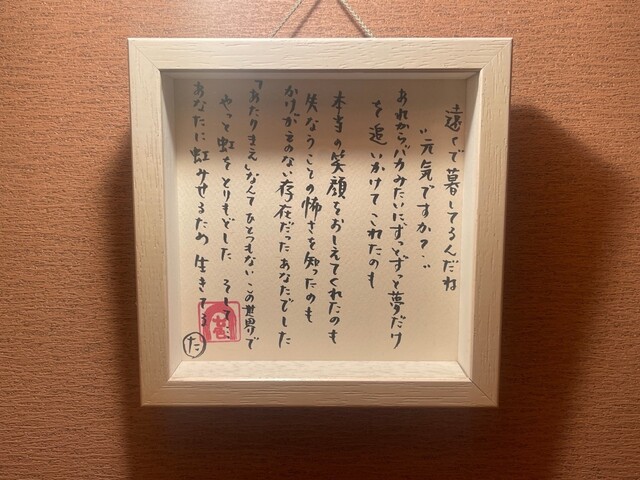 遠くで暮してるんだね
"元気ですか？"
あれからバカみたいにずっとずっと夢だけ
を追いかけてこれたのも
本当の笑顔をおしえてくれたのも
失なうことの怖さを知ったのも
かけがえのない存在だったあなたでした
「あたりまえ」なんてひとつもない この世界で
やっと虹をとりもどした そして
あなたに虹みせるため 生きてる
た